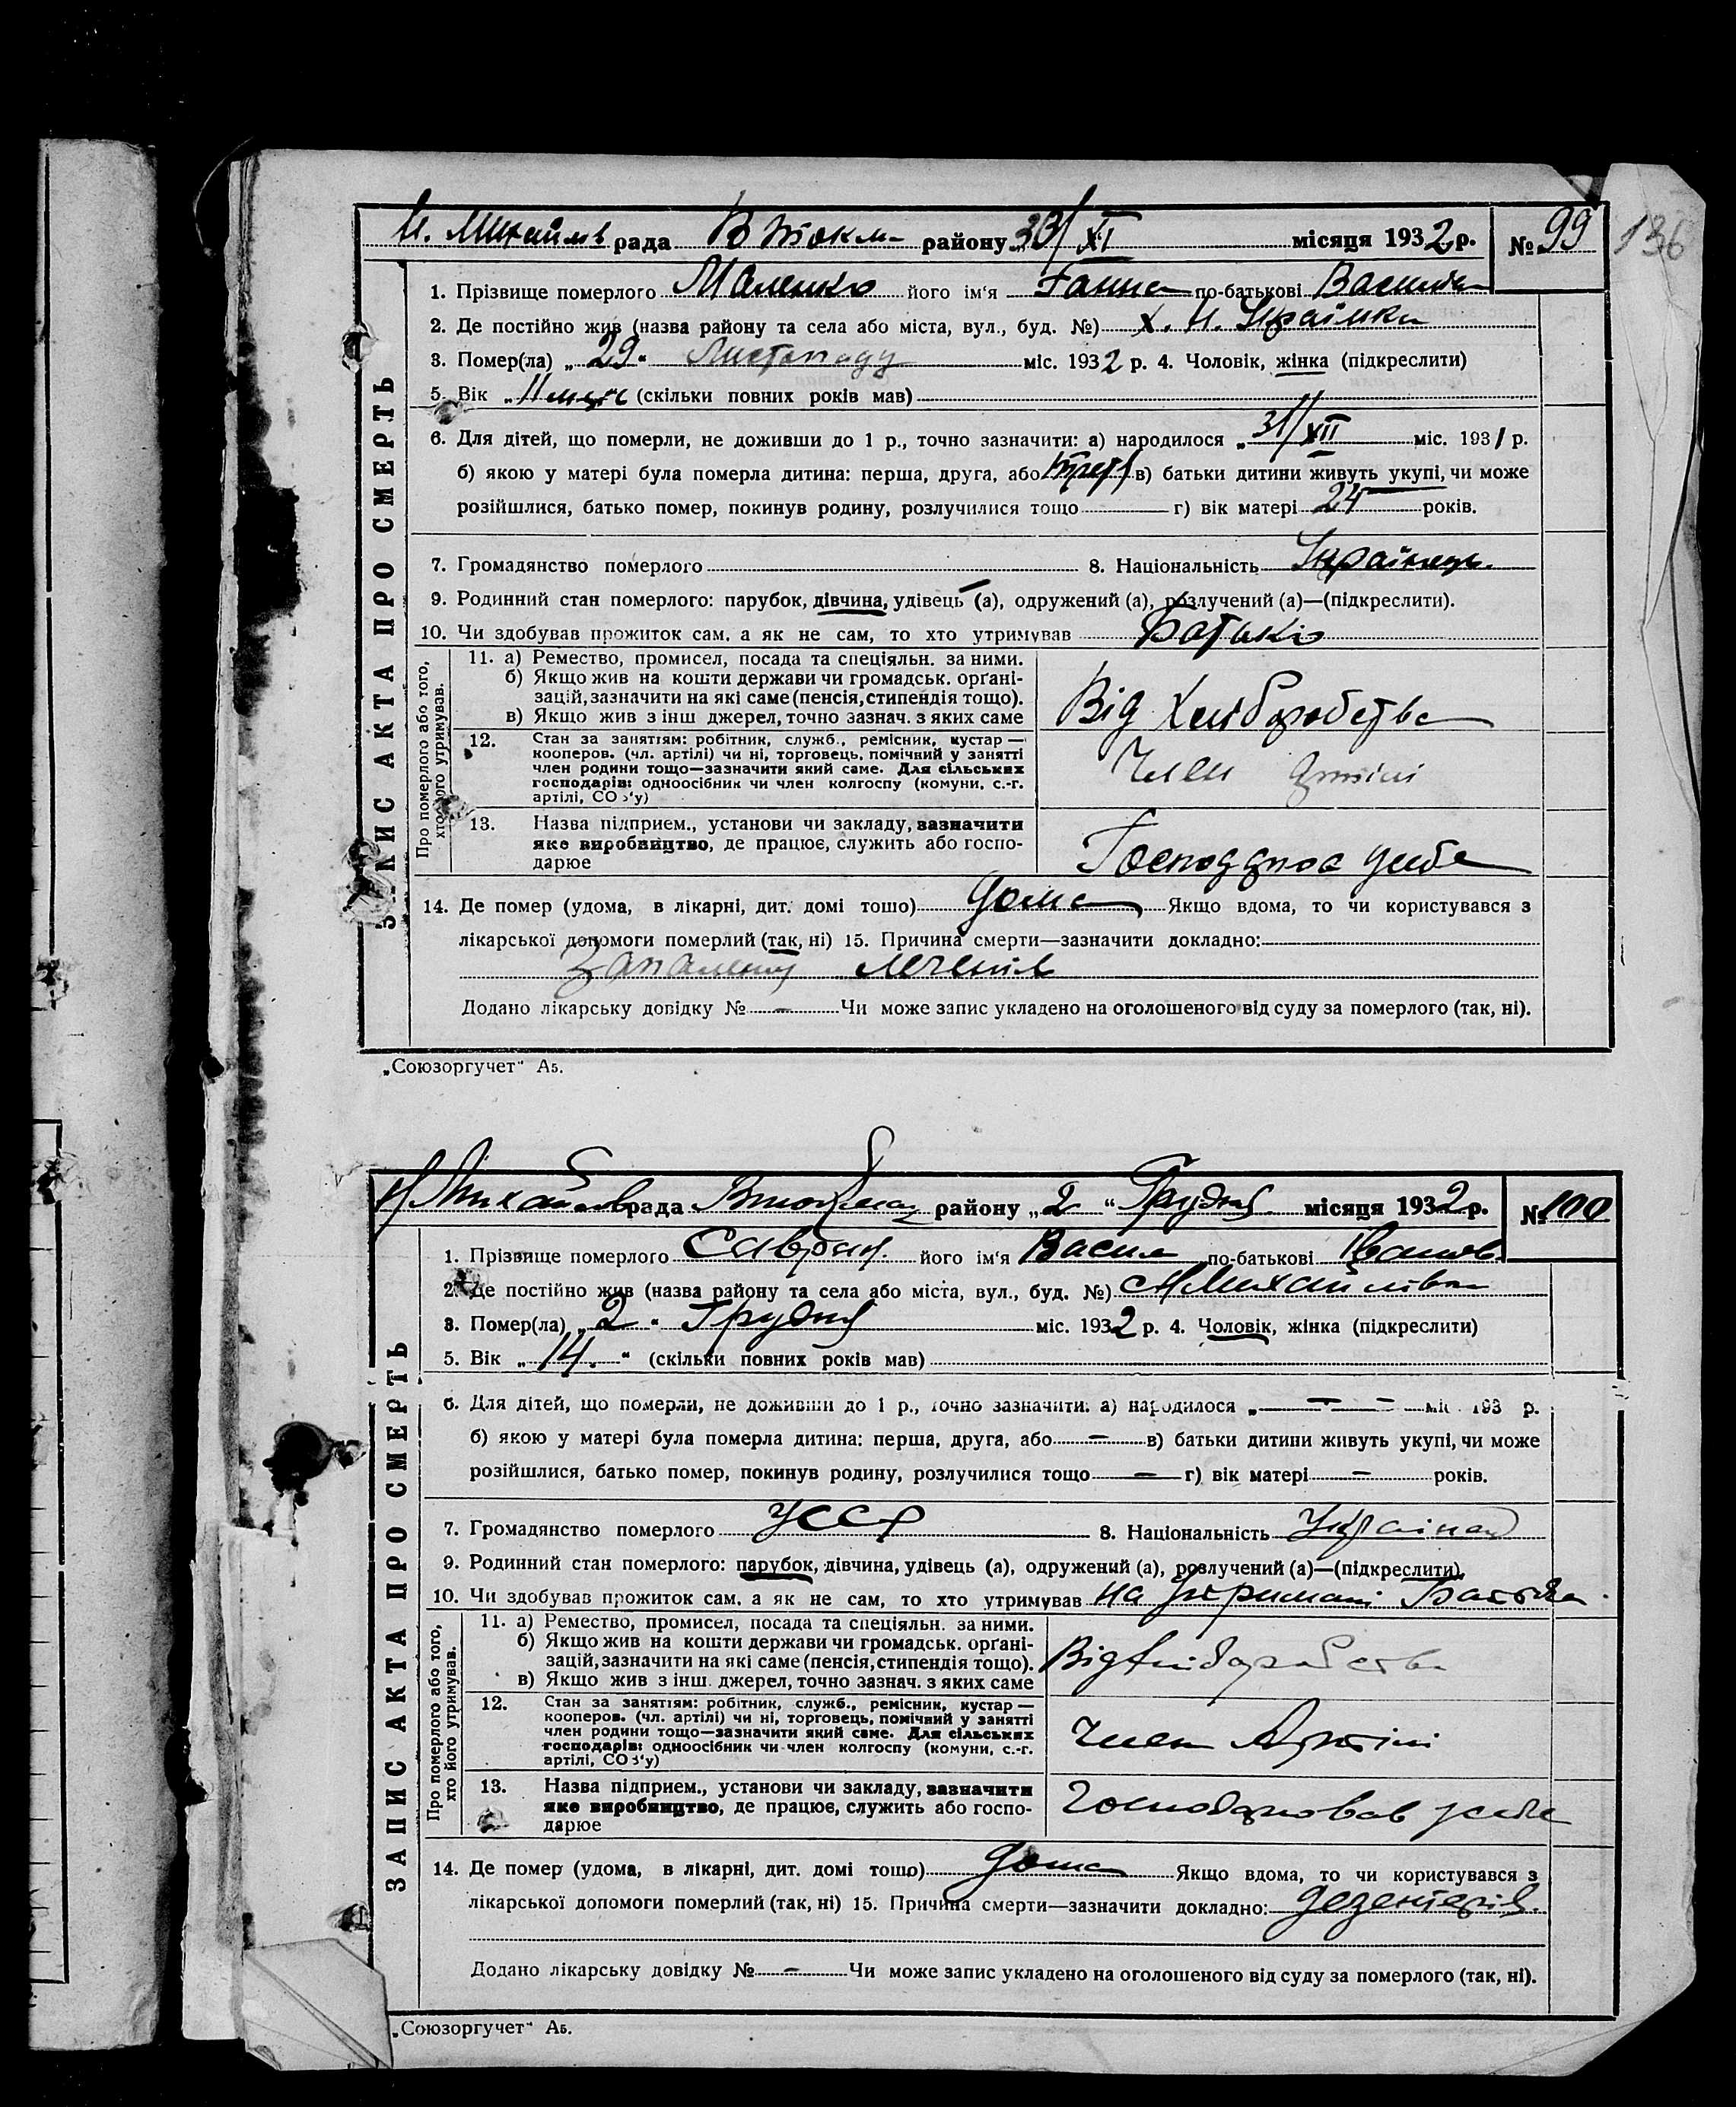 Н. Михайлів рада В Токм. району 30/XI місяця 1932 р. № 99
136
ЗАПИС АКТА ПРО СМЕРТЬ
1. Прізвище померлого Маленко його ім'я Ганна по-батькові Василів
2. Де постійно жив (назва району та села або міста, вул., буд. №) х. Н. Українка
3. Помер(ла) „29" Листопаду міс. 1932 р. 4. Чоловік, жінка (підкреслити)
5. Вік „11 міся (скільки повних років мав)
6. Для дітей, що померли, не доживши до 1 р., точно зазначити: а) народилося „31/XII міс. 1931 р.
б) якою у матері була померла дитина: перша, друга, або трет в) батьки дитини живуть укупі, чи може
розійшлися, батько помер, покинув родину, розлучилися тощо г) вік матері 24 років.
7. Громадянство померлого 8. Національність Українець.
9. Родинний стан померлого: парубок, дівчина, удівець (а), одружений (а), розлучений (а)—(підкреслити).
10. Чи здобував прожиток сам, а як не сам, то хто утримував Батько
Про померлого або того, хто його утримував.
11. а) Ремество, промисел, посада та спеціяльн. за ними.
б) Якщо жив на кошти держави чи громадськ. орґані-
зацій, зазначити на які саме (пенсія, стипендія тощо).
в) Якщо жив з інш джерел, точно зазнач. з яких саме
Від Хліборобства
12. Стан за занятіям: робітник, служб., ремісник, кустар —
кооперов. (чл. артілі) чи ні, торговець, помічний у занятті
член родини тощо—зазначити який саме. Для сільських
господарів: одноосібник чи член колгоспу (комуни, с.-г.
артілі, СОЗ'у)
Член Артілі
13. Назва підприєм., установи чи закладу, зазначити
яке виробництво, де працює, служить або госпо-
дарює
Господарює у себе
14. Де помер (удома, в лікарні, дит. домі тощо) дома Якщо вдома, то чи користувався з
лікарської допомоги померлий (так, ні) 15. Причина смерти—зазначити докладно:
Запаленя легенів
Додано лікарську довідку № — Чи може запис укладено на оголошеного від суду за померлого (так, ні).
„Союзоргучет" А5.
Н Михайлов рада Втокмац району „2" Грудня місяця 1932 р. № 100
ЗАПИС АКТА ПРО СМЕРТЬ
1. Прізвище померлого Савран. його ім'я Василь по-батькові Іванов.
2. Де постійно жив (назва району та села або міста, вул., буд. №) Н Михайлівка
3. Помер(ла) „2" Грудня міс. 1932 р. 4. Чоловік, жінка (підкреслити)
5. Вік „14." (скільки повних років мав)
6. Для дітей, що померли, не доживши до 1 р., точно зазначити: а) народилося „— — міс. 193 р.
б) якою у матері була померла дитина: перша, друга, або — в) батьки дитини живуть укупі, чи може
розійшлися, батько помер, покинув родину, розлучилися тощо — г) вік матері — років.
7. Громадянство померлого УССР 8. Національність
9. Родинний стан померлого: парубок, дівчина, удівець (а), одружений (а), розлучений (а)—(підкреслити).
10. Чи здобував прожиток сам, а як не сам, то хто утримував на утримані Батька.
Про померлого або того, хто його утримував.
11. а) Ремество, промисел, посада та спеціяльн. за ними.
б) Якщо жив на кошти держави чи громадськ. орґані-
зацій, зазначити на які саме (пенсія, стипендія тощо).
в) Якщо жив з інш. джерел, точно зазнач. з яких саме
Від Хліборобства
12. Стан за занятіям: робітник, служб., ремісник, кустар —
кооперов. (чл. артілі) чи ні, торговець, помічний у занятті
член родини тощо—зазначити який саме. Для сільських
господарів: одноосібник чи член колгоспу (комуни, с.-г.
артілі, СОЗ'у)
Член Артілі
13. Назва підприєм., установи чи закладу, зазначити
яке виробництво, де працює, служить або госпо-
дарює
Господарював у себе
14. Де помер (удома, в лікарні, дит. домі тощо) дома Якщо вдома, то чи користувався з
лікарської допомоги померлий (так, ні) 15. Причина смерти—зазначити докладно: дезентерія.
Додано лікарську довідку № — Чи може запис укладено на оголошеного від суду за померлого (так, ні).
„Союзоргучет" А5.